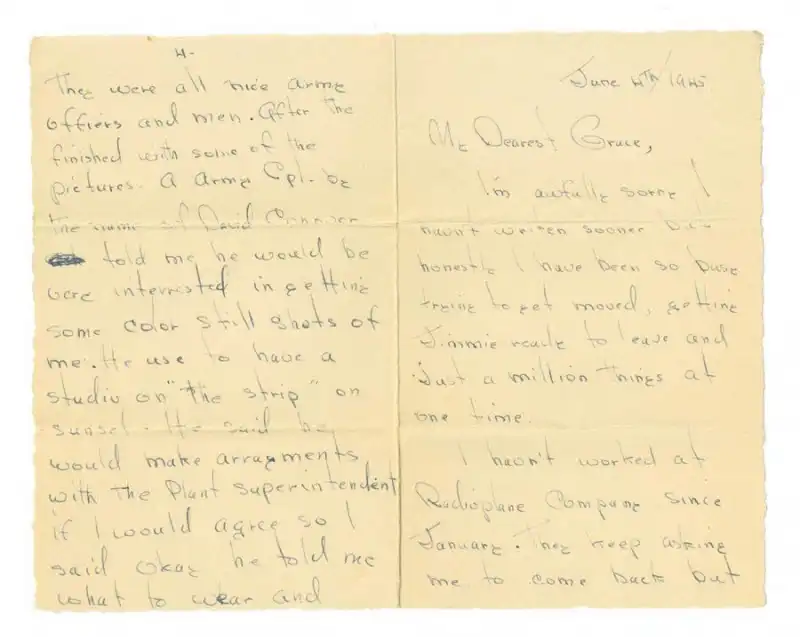 4-
They were all nice army
offiers and men. After the
finished with some of the
pictures. A army Cpl. by
the name of David Conover
told me he would be
very interrested in getting
some color still shots of
me. He use to have a
studio on "the strip" on
sunset. He said he
would make arragments
with the plant superintendent
if I would agree so I
said okay he told me
what to wear and
June 4th/1945
My Dearest Grace,
I'm awfully sorry I
havn't writen sooner but
honestly I have been so busy
trying to get moved, getting
Jimmie ready to leave and
Just a million things at
one time.
I havn't worked at
Radioplane Company since
January. They keep asking
me to come back but